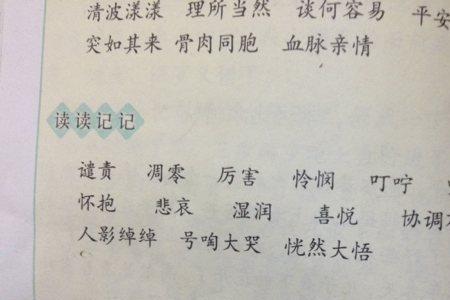 清波漾漾 理所当然 谈何容易 平安
突如其来 骨肉同胞 血脉亲情
读读记记
谴责 凋零 厉害 怜悯 叮咛
怀抱 悲哀 湿润 喜悦 协调
人影绰绰 号啕大哭 恍然大悟